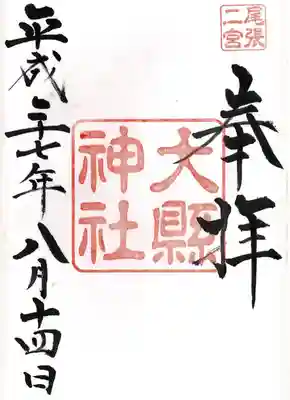 尾張
二宮
奉拝
大縣
神社
平成二十七年八月十四日